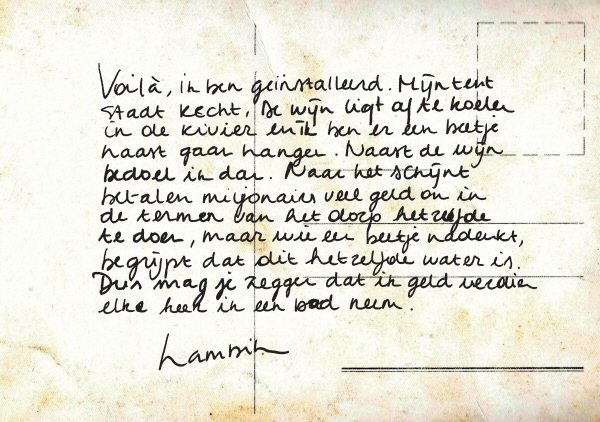 Voilà, ik ben geïnstalleerd. Mijn tent
staat recht, de wijn ligt af te koelen
in de rivier en ik ben er een beetje
naast gaan hangen. Naast de wijn
bedoel ik dan. Naar het schijnt
betalen miljonairs veel geld om in
de termen van het dorp hetzelfde
te doen, maar wie een beetje nadenkt,
begrijpt dat dit hetzelfde water is.
Dus mag je zeggen dat ik geld verdien
elke keer ik een bad neem.
Lambik